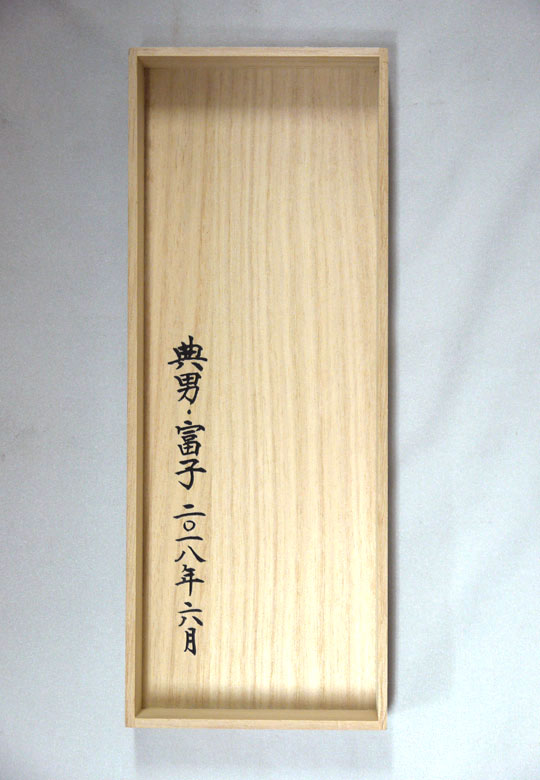 典男・富子 二〇一八年 六月